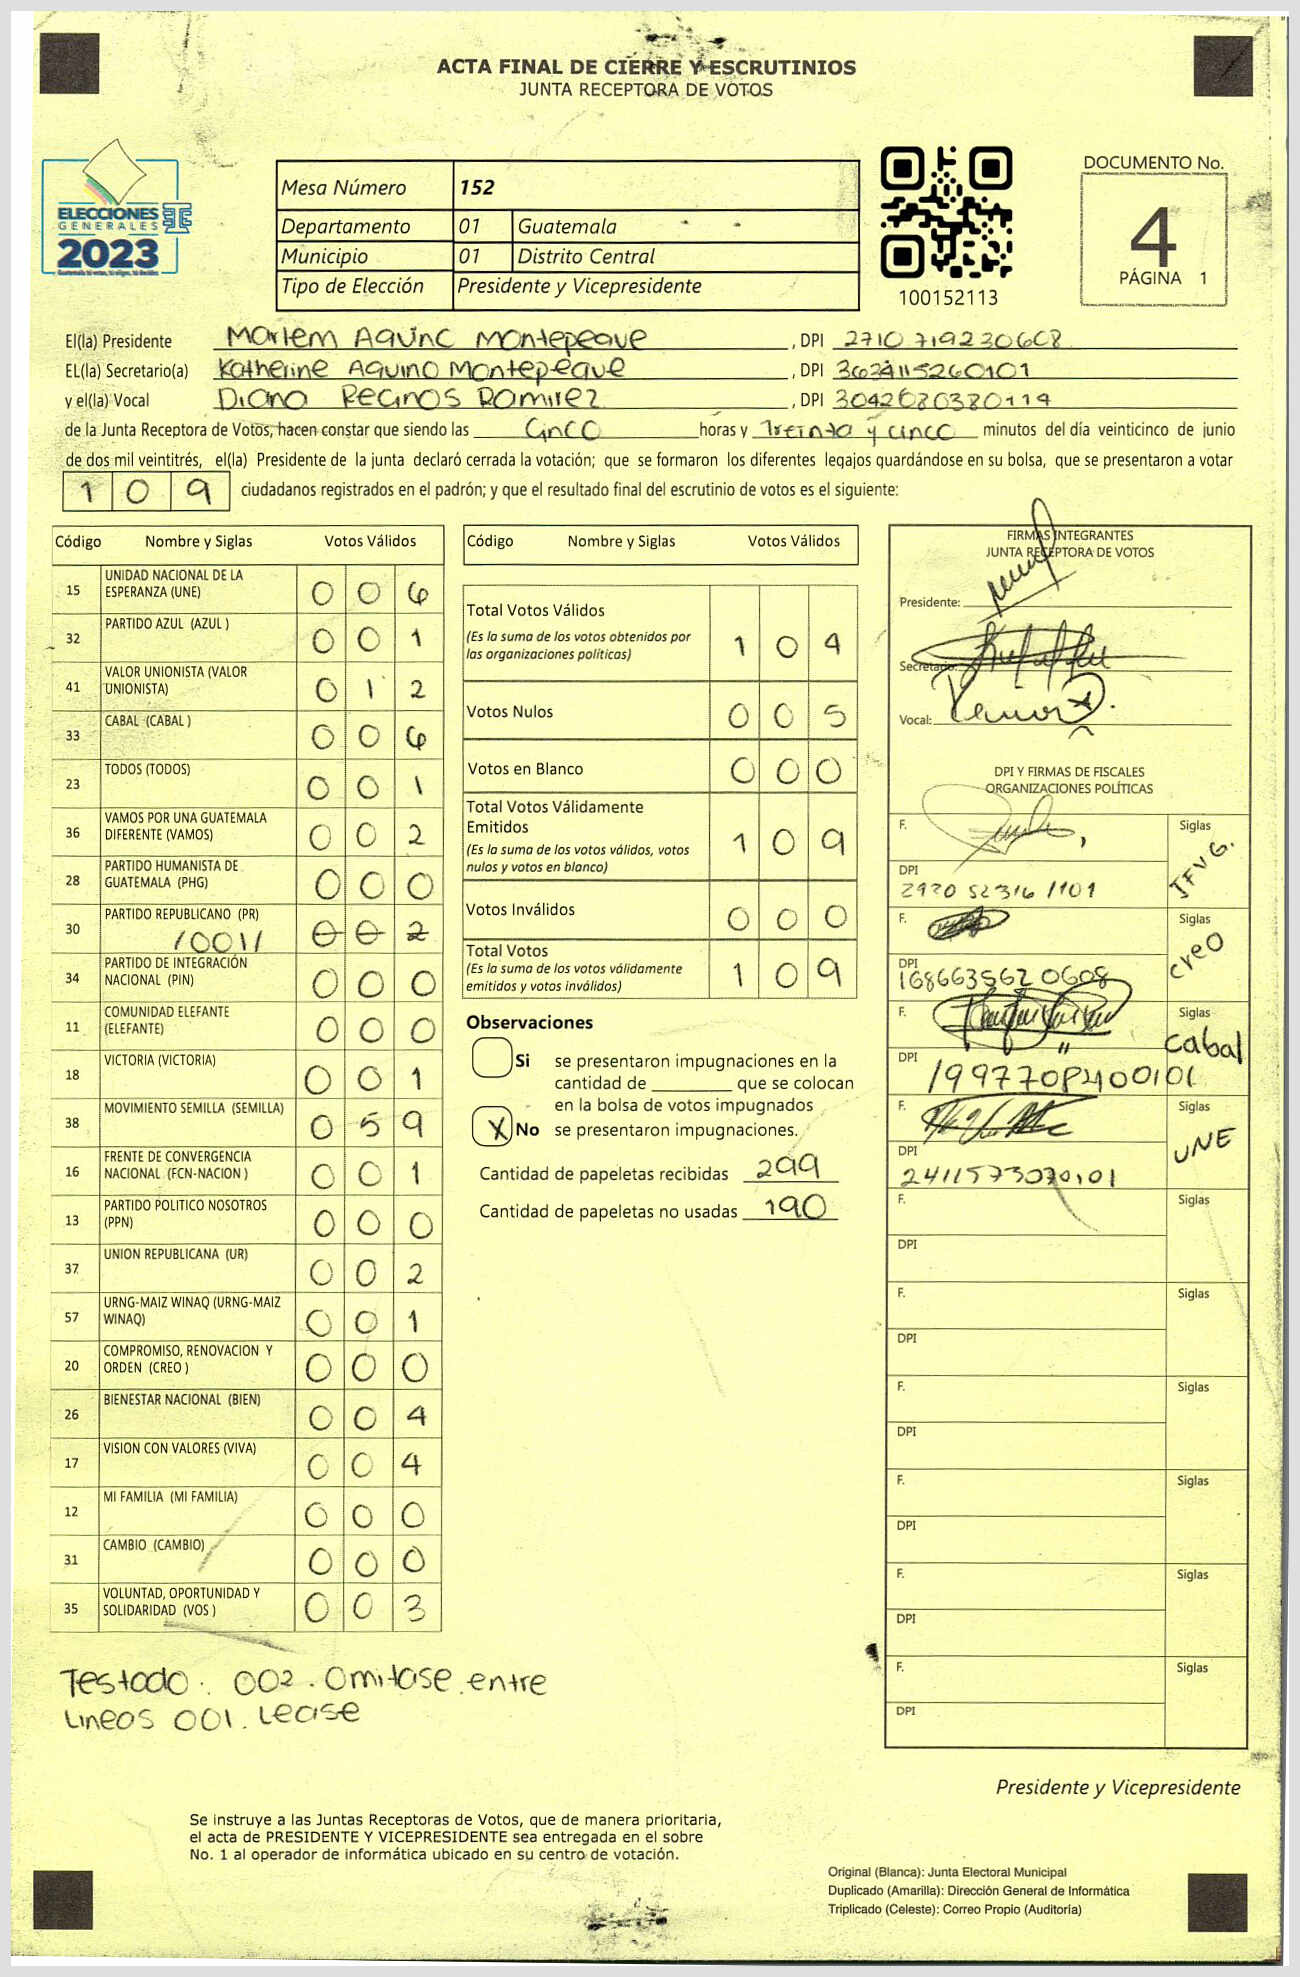 ACTA FINAL DE CIERRE Y ESCRUTINIOS
JUNTA RECEPTORA DE VOTOS
ELECCIONES
GENERALES
2023
Guatemala tú votas, tú eliges, tú decides
Mesa Número 152
Departamento 01 Guatemala
Municipio 01 Distrito Central
Tipo de Elección Presidente y Vicepresidente
100152113
DOCUMENTO No.
4
PÁGINA 1
El(la) Presidente Marlem Aquino Montepeque , DPI 2710 719230608
EL(la) Secretario(a) Katherine Aquino Montepeque , DPI 3634115260101
y el(la) Vocal Diana Recinos Ramirez , DPI 3042680380114
de la Junta Receptora de Votos, hacen constar que siendo las Cinco horas y Treinta y cinco minutos del día veinticinco de junio
de dos mil veintitrés, el(la) Presidente de la junta declaró cerrada la votación; que se formaron los diferentes legajos guardándose en su bolsa, que se presentaron a votar
1 0 9 ciudadanos registrados en el padrón; y que el resultado final del escrutinio de votos es el siguiente:
Código Nombre y Siglas Votos Válidos
15 UNIDAD NACIONAL DE LA ESPERANZA (UNE) 0 0 6
32 PARTIDO AZUL (AZUL ) 0 0 1
41 VALOR UNIONISTA (VALOR UNIONISTA) 0 1 2
33 CABAL (CABAL ) 0 0 6
23 TODOS (TODOS) 0 0 1
36 VAMOS POR UNA GUATEMALA DIFERENTE (VAMOS) 0 0 2
28 PARTIDO HUMANISTA DE GUATEMALA (PHG) 0 0 0
30 PARTIDO REPUBLICANO (PR) /001/ 0 0 2
34 PARTIDO DE INTEGRACIÓN NACIONAL (PIN) 0 0 0
11 COMUNIDAD ELEFANTE (ELEFANTE) 0 0 0
18 VICTORIA (VICTORIA) 0 0 1
38 MOVIMIENTO SEMILLA (SEMILLA) 0 5 9
16 FRENTE DE CONVERGENCIA NACIONAL (FCN-NACION ) 0 0 1
13 PARTIDO POLITICO NOSOTROS (PPN) 0 0 0
37 UNION REPUBLICANA (UR) 0 0 2
57 URNG-MAIZ WINAQ (URNG-MAIZ WINAQ) 0 0 1
20 COMPROMISO, RENOVACION Y ORDEN (CREO ) 0 0 0
26 BIENESTAR NACIONAL (BIEN) 0 0 4
17 VISION CON VALORES (VIVA) 0 0 4
12 MI FAMILIA (MI FAMILIA) 0 0 0
31 CAMBIO (CAMBIO) 0 0 0
35 VOLUNTAD, OPORTUNIDAD Y SOLIDARIDAD (VOS ) 0 0 3
Testado. 002. Omitase entre
Lineas 001. Lease
Código Nombre y Siglas Votos Válidos
Total Votos Válidos 1 0 4
(Es la suma de los votos obtenidos por
las organizaciones políticas)
Votos Nulos 0 0 5
Votos en Blanco 0 0 0
Total Votos Válidamente
Emitidos 1 0 9
(Es la suma de los votos válidos, votos
nulos y votos en blanco)
Votos Inválidos 0 0 0
Total Votos 1 0 9
(Es la suma de los votos válidamente
emitidos y votos inválidos)
Observaciones
Si se presentaron impugnaciones en la
cantidad de ________ que se colocan
en la bolsa de votos impugnados
X No se presentaron impugnaciones.
Cantidad de papeletas recibidas 299
Cantidad de papeletas no usadas 190
FIRMAS INTEGRANTES
JUNTA RECEPTORA DE VOTOS
Presidente:
Secretario:
Vocal:
DPI Y FIRMAS DE FISCALES
ORGANIZACIONES POLÍTICAS
F. Siglas
DPI
2920 52316 1101
F. Siglas creo
DPI
168663562 0608
F. Siglas Cabal
DPI 1997708400101
F. Siglas UNE
DPI
2411573070101
F. Siglas
DPI
F. Siglas
DPI
F. Siglas
DPI
F. Siglas
DPI
F. Siglas
DPI
F. Siglas
DPI
Presidente y Vicepresidente
Se instruye a las Juntas Receptoras de Votos, que de manera prioritaria,
el acta de PRESIDENTE Y VICEPRESIDENTE sea entregada en el sobre
No. 1 al operador de informática ubicado en su centro de votación.
Original (Blanca): Junta Electoral Municipal
Duplicado (Amarilla): Dirección General de Informática
Triplicado (Celeste): Correo Propio (Auditoría)